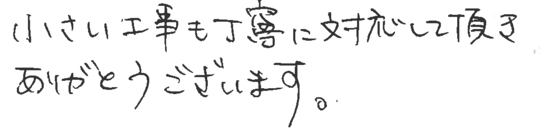 小さい工事も丁寧に対応して頂き
ありがとうございます。